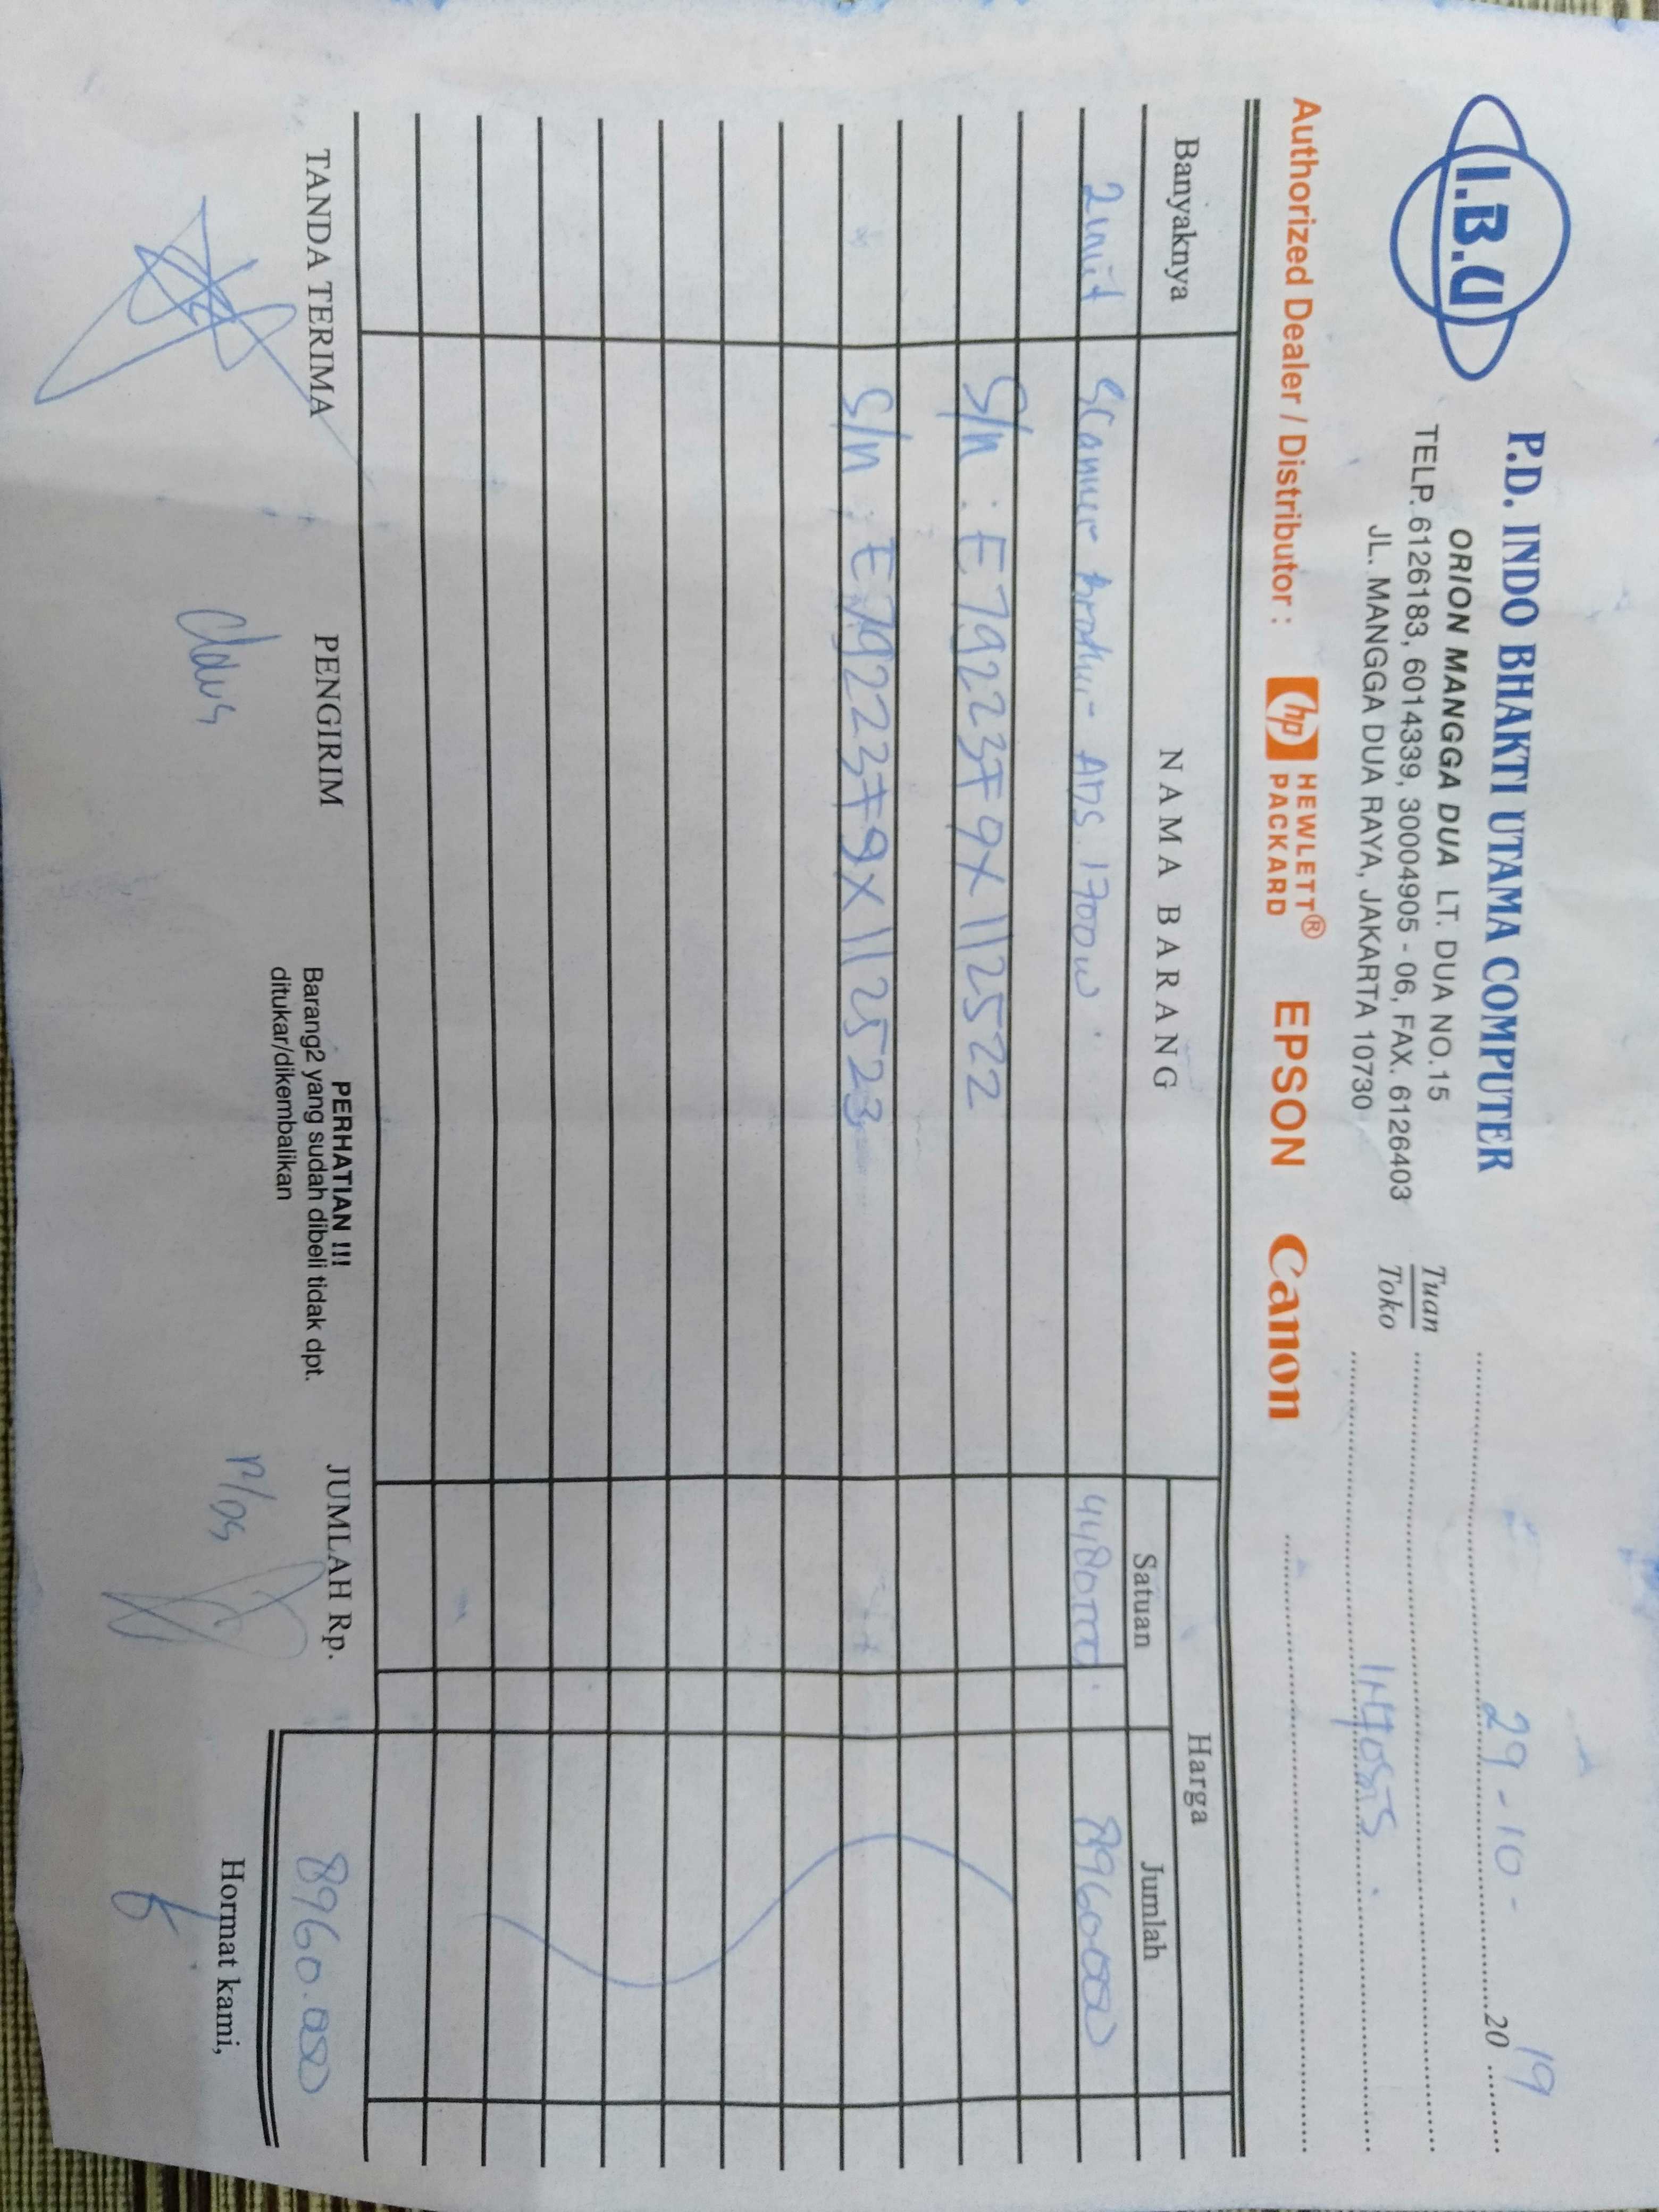 I.B.U
P.D. INDO BHAKTI UTAMA COMPUTER
ORION MANGGA DUA LT. DUA NO.15
TELP. 6126183, 6014339, 30004905 - 06, FAX. 6126403
JL. MANGGA DUA RAYA, JAKARTA 10730
29-10- 2019
Tuan
Toko
Authorized Dealer / Distributor : hp HEWLETT® PACKARD EPSON Canon
Banyaknya NAMA BARANG Harga
Satuan Jumlah
2 unit Scanner Brother ADS. 1700w 4480000 8960000
S/n : E79223F9X112522
S/n : E79223F9X112523
TANDA TERIMA PENGIRIM PERHATIAN !!! JUMLAH Rp. 8960.000
Barang2 yang sudah dibeli tidak dpt.
ditukar/dikembalikan
Hormat kami,